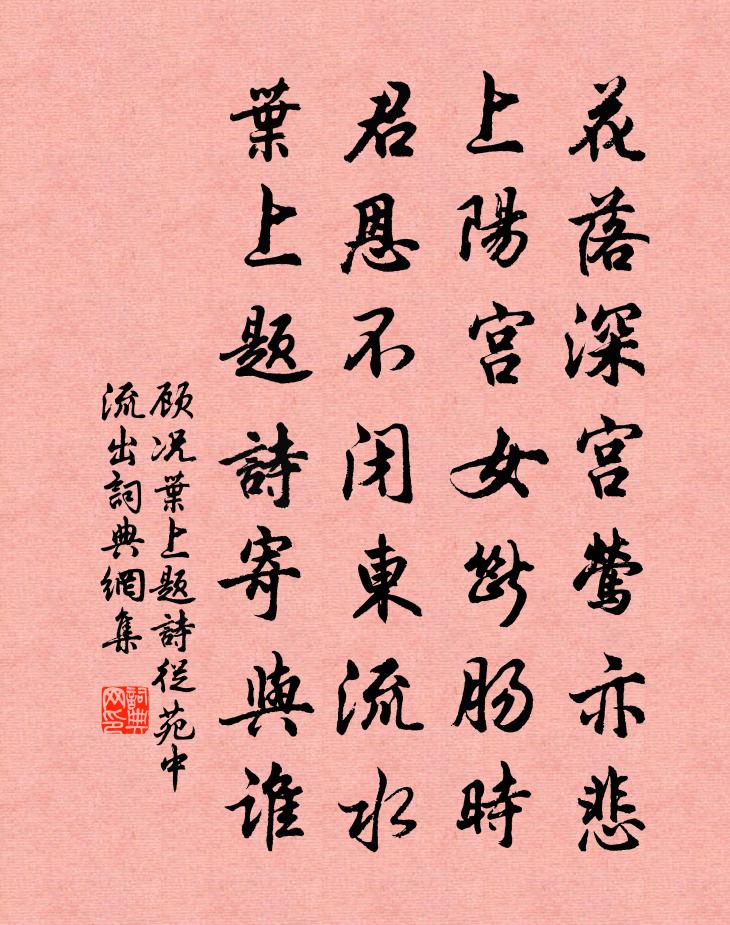 花落深宫鶯亦悲
上陽宫女斷肠時
君恩不闭東流水
葉上题詩寄與谁
顾况葉上题詩從苑中
流出詞典網集
詞典
网印